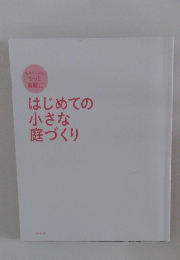 もっと
はじめての
小さな
庭づくり